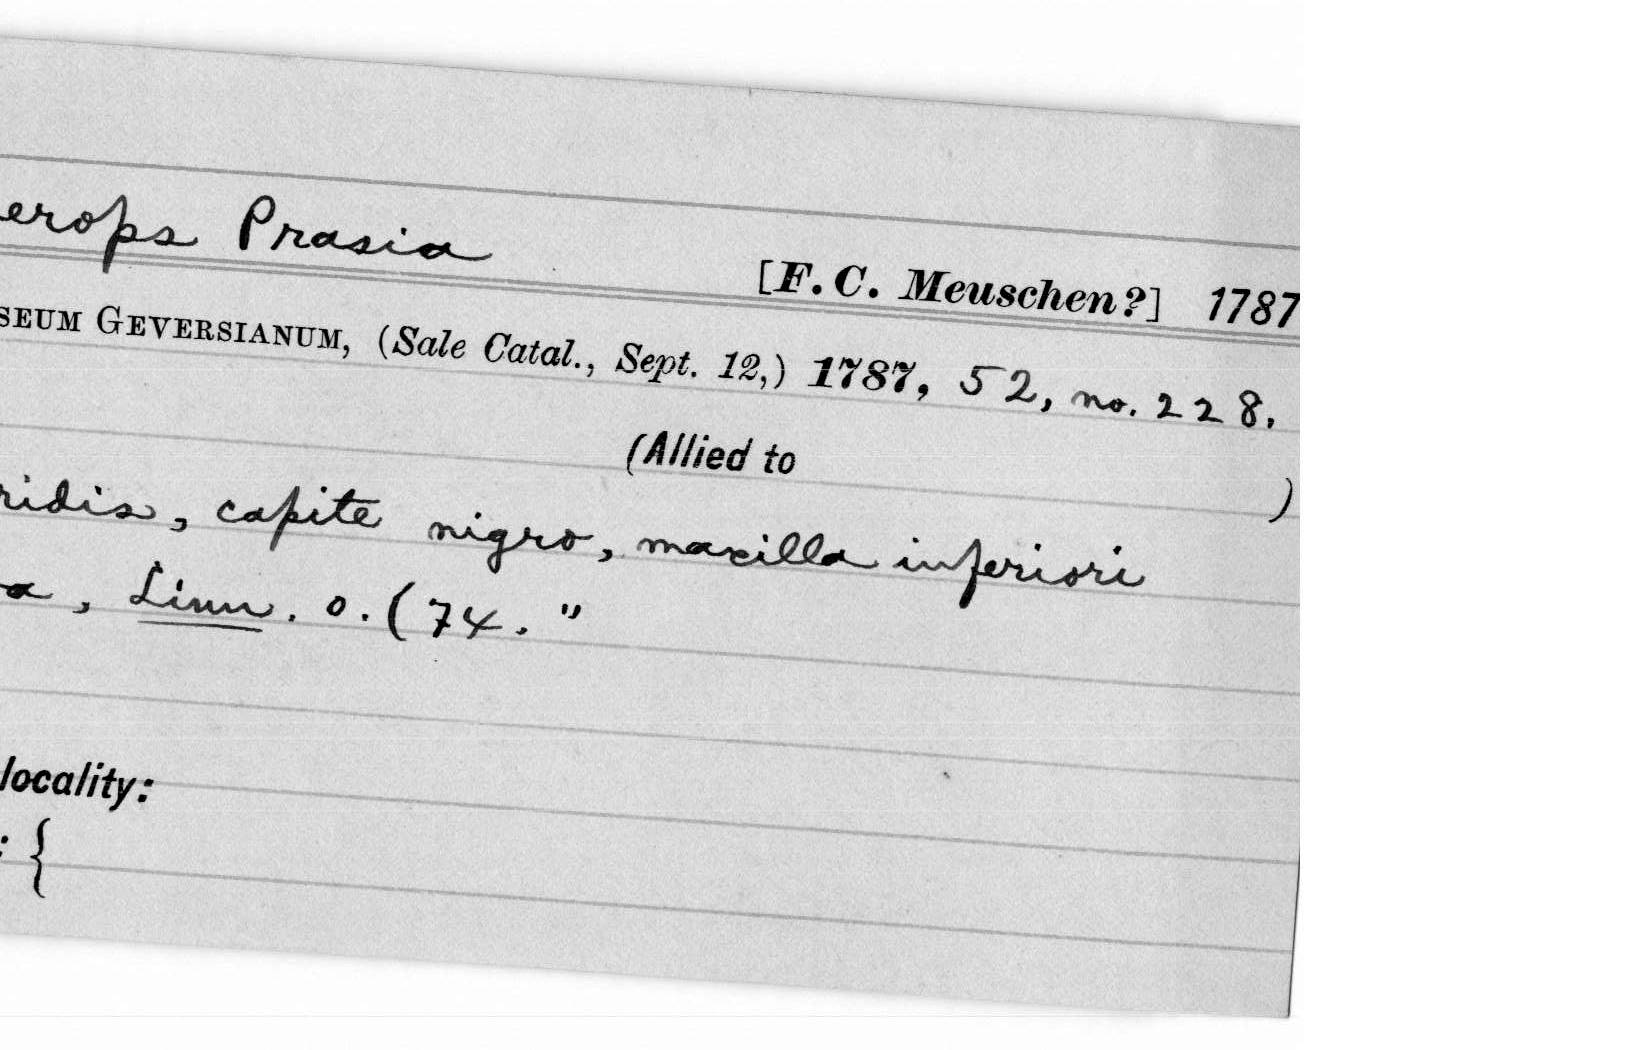 erops Prasia
[F. C. Meuschen?] 1787
SEUM GEVERSIANUM, (Sale Catal., Sept. 12,) 1787, 52, no. 228.
(Allied to )
ridis, capite nigro, maxilla inferiori
a, Linn. o. (74."
locality:
: {